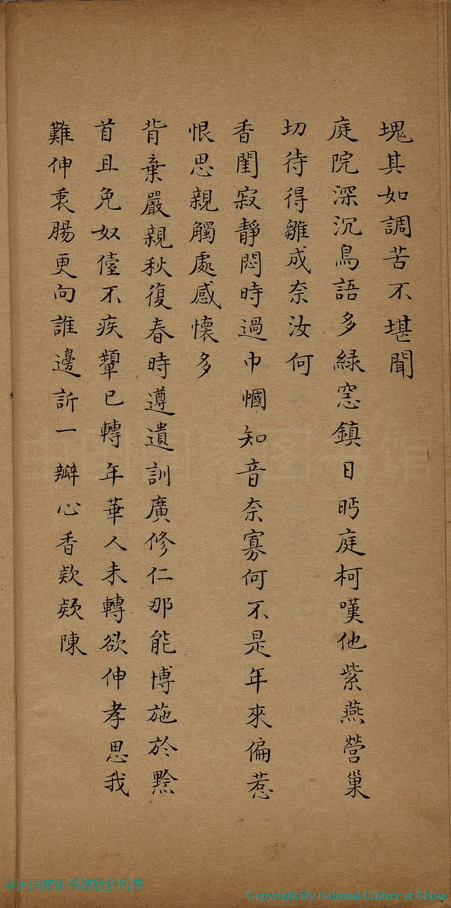 塊其如調苦不堪聞
庭院深沉鳥語多綠窓鎮日眄庭柯嘆他紫燕營巢
切待得雛成奈汝何
香閨寂靜悶時過巾幗知音奈寡何不是年來偏惹
恨思親觸處感懷多
背棄嚴親秋復春時遵遺訓廣修仁那能博施於黔
首且免奴儓不疾顰已轉年華人未轉欲伸孝思我
難伸衷腸更向誰邊訴一瓣心香欵欵陳
Copyright By National Library of China